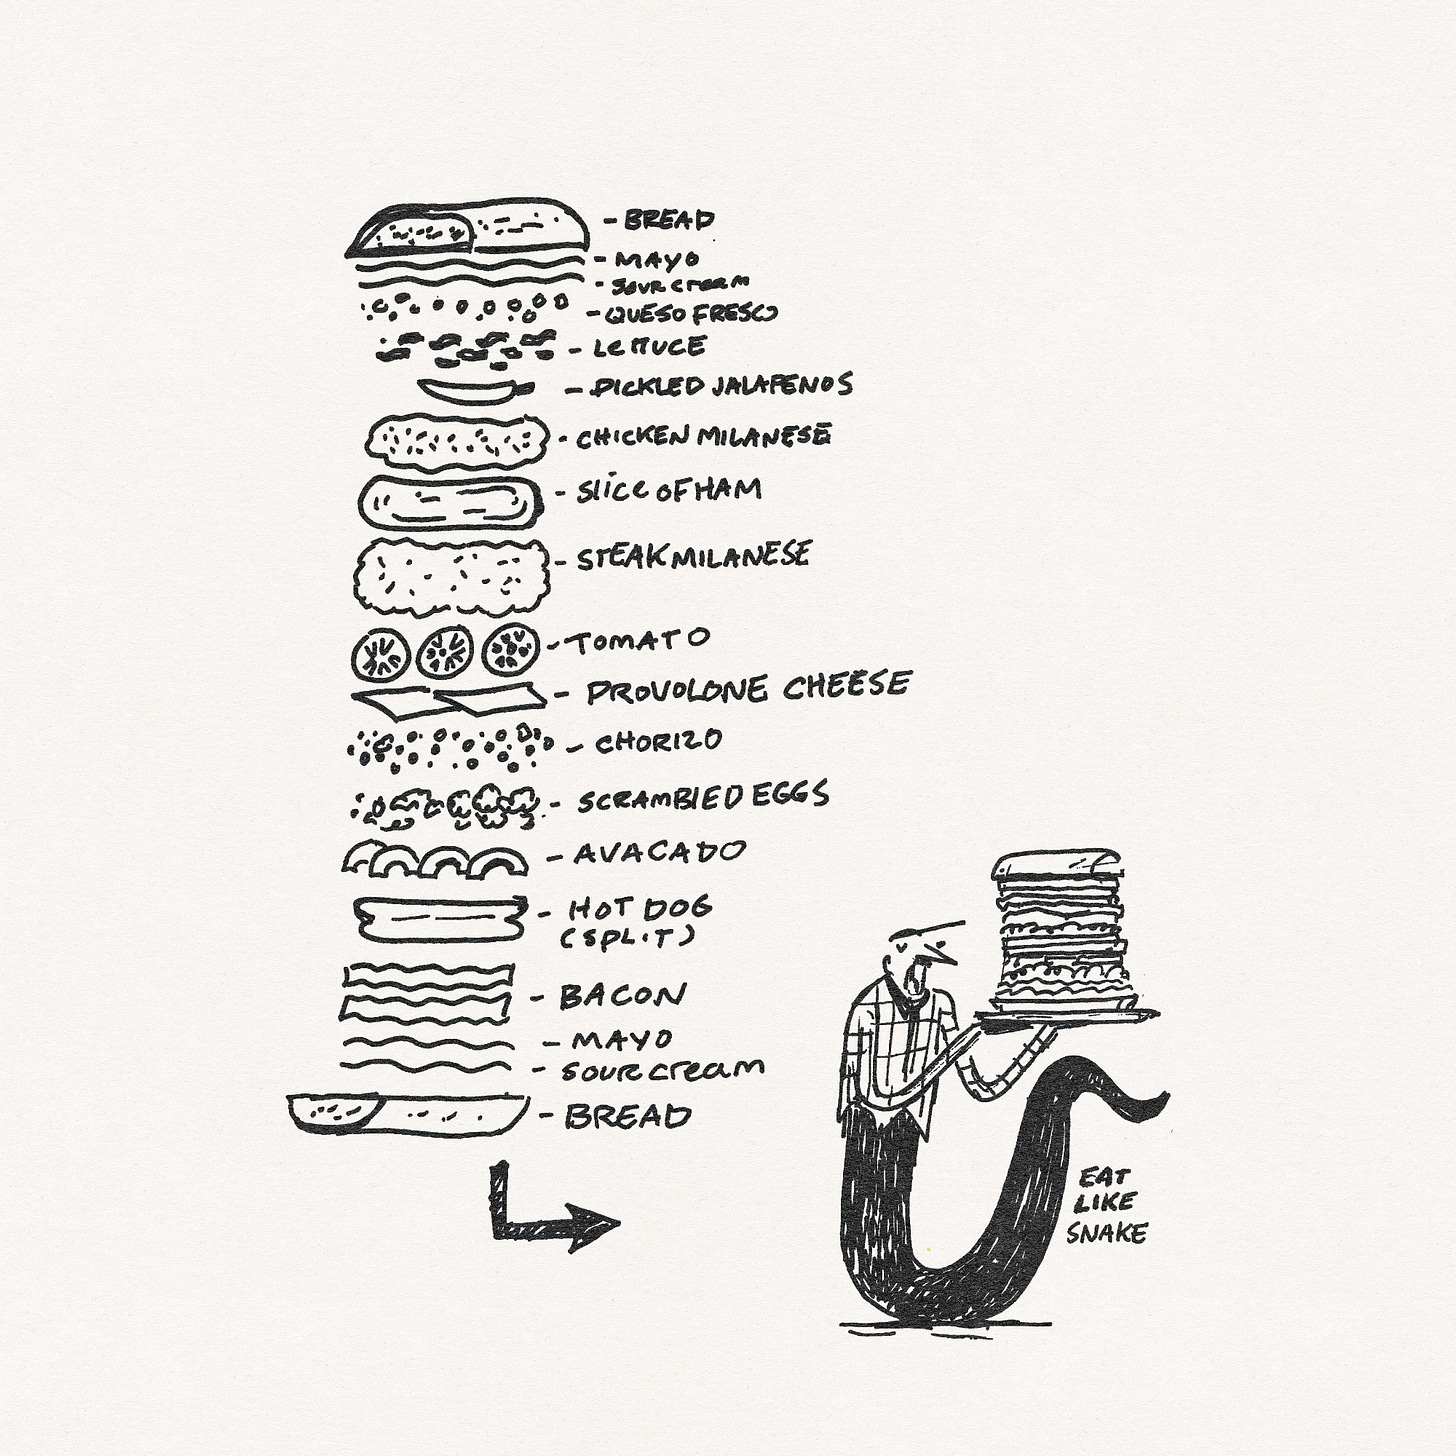 - BREAD
- MAYO
- SOUR CREAM
- QUESO FRESCO
- LETTUCE
- PICKLED JALAPENOS
- CHICKEN MILANESE
- SLICE OF HAM
- STEAK MILANESE
- TOMATO
- PROVOLONE CHEESE
- CHORIZO
- SCRAMBLED EGGS
- AVACADO
- HOT DOG
(SPLIT)
- BACON
- MAYO
- SOUR CREAM
- BREAD
EAT
LIKE
SNAKE